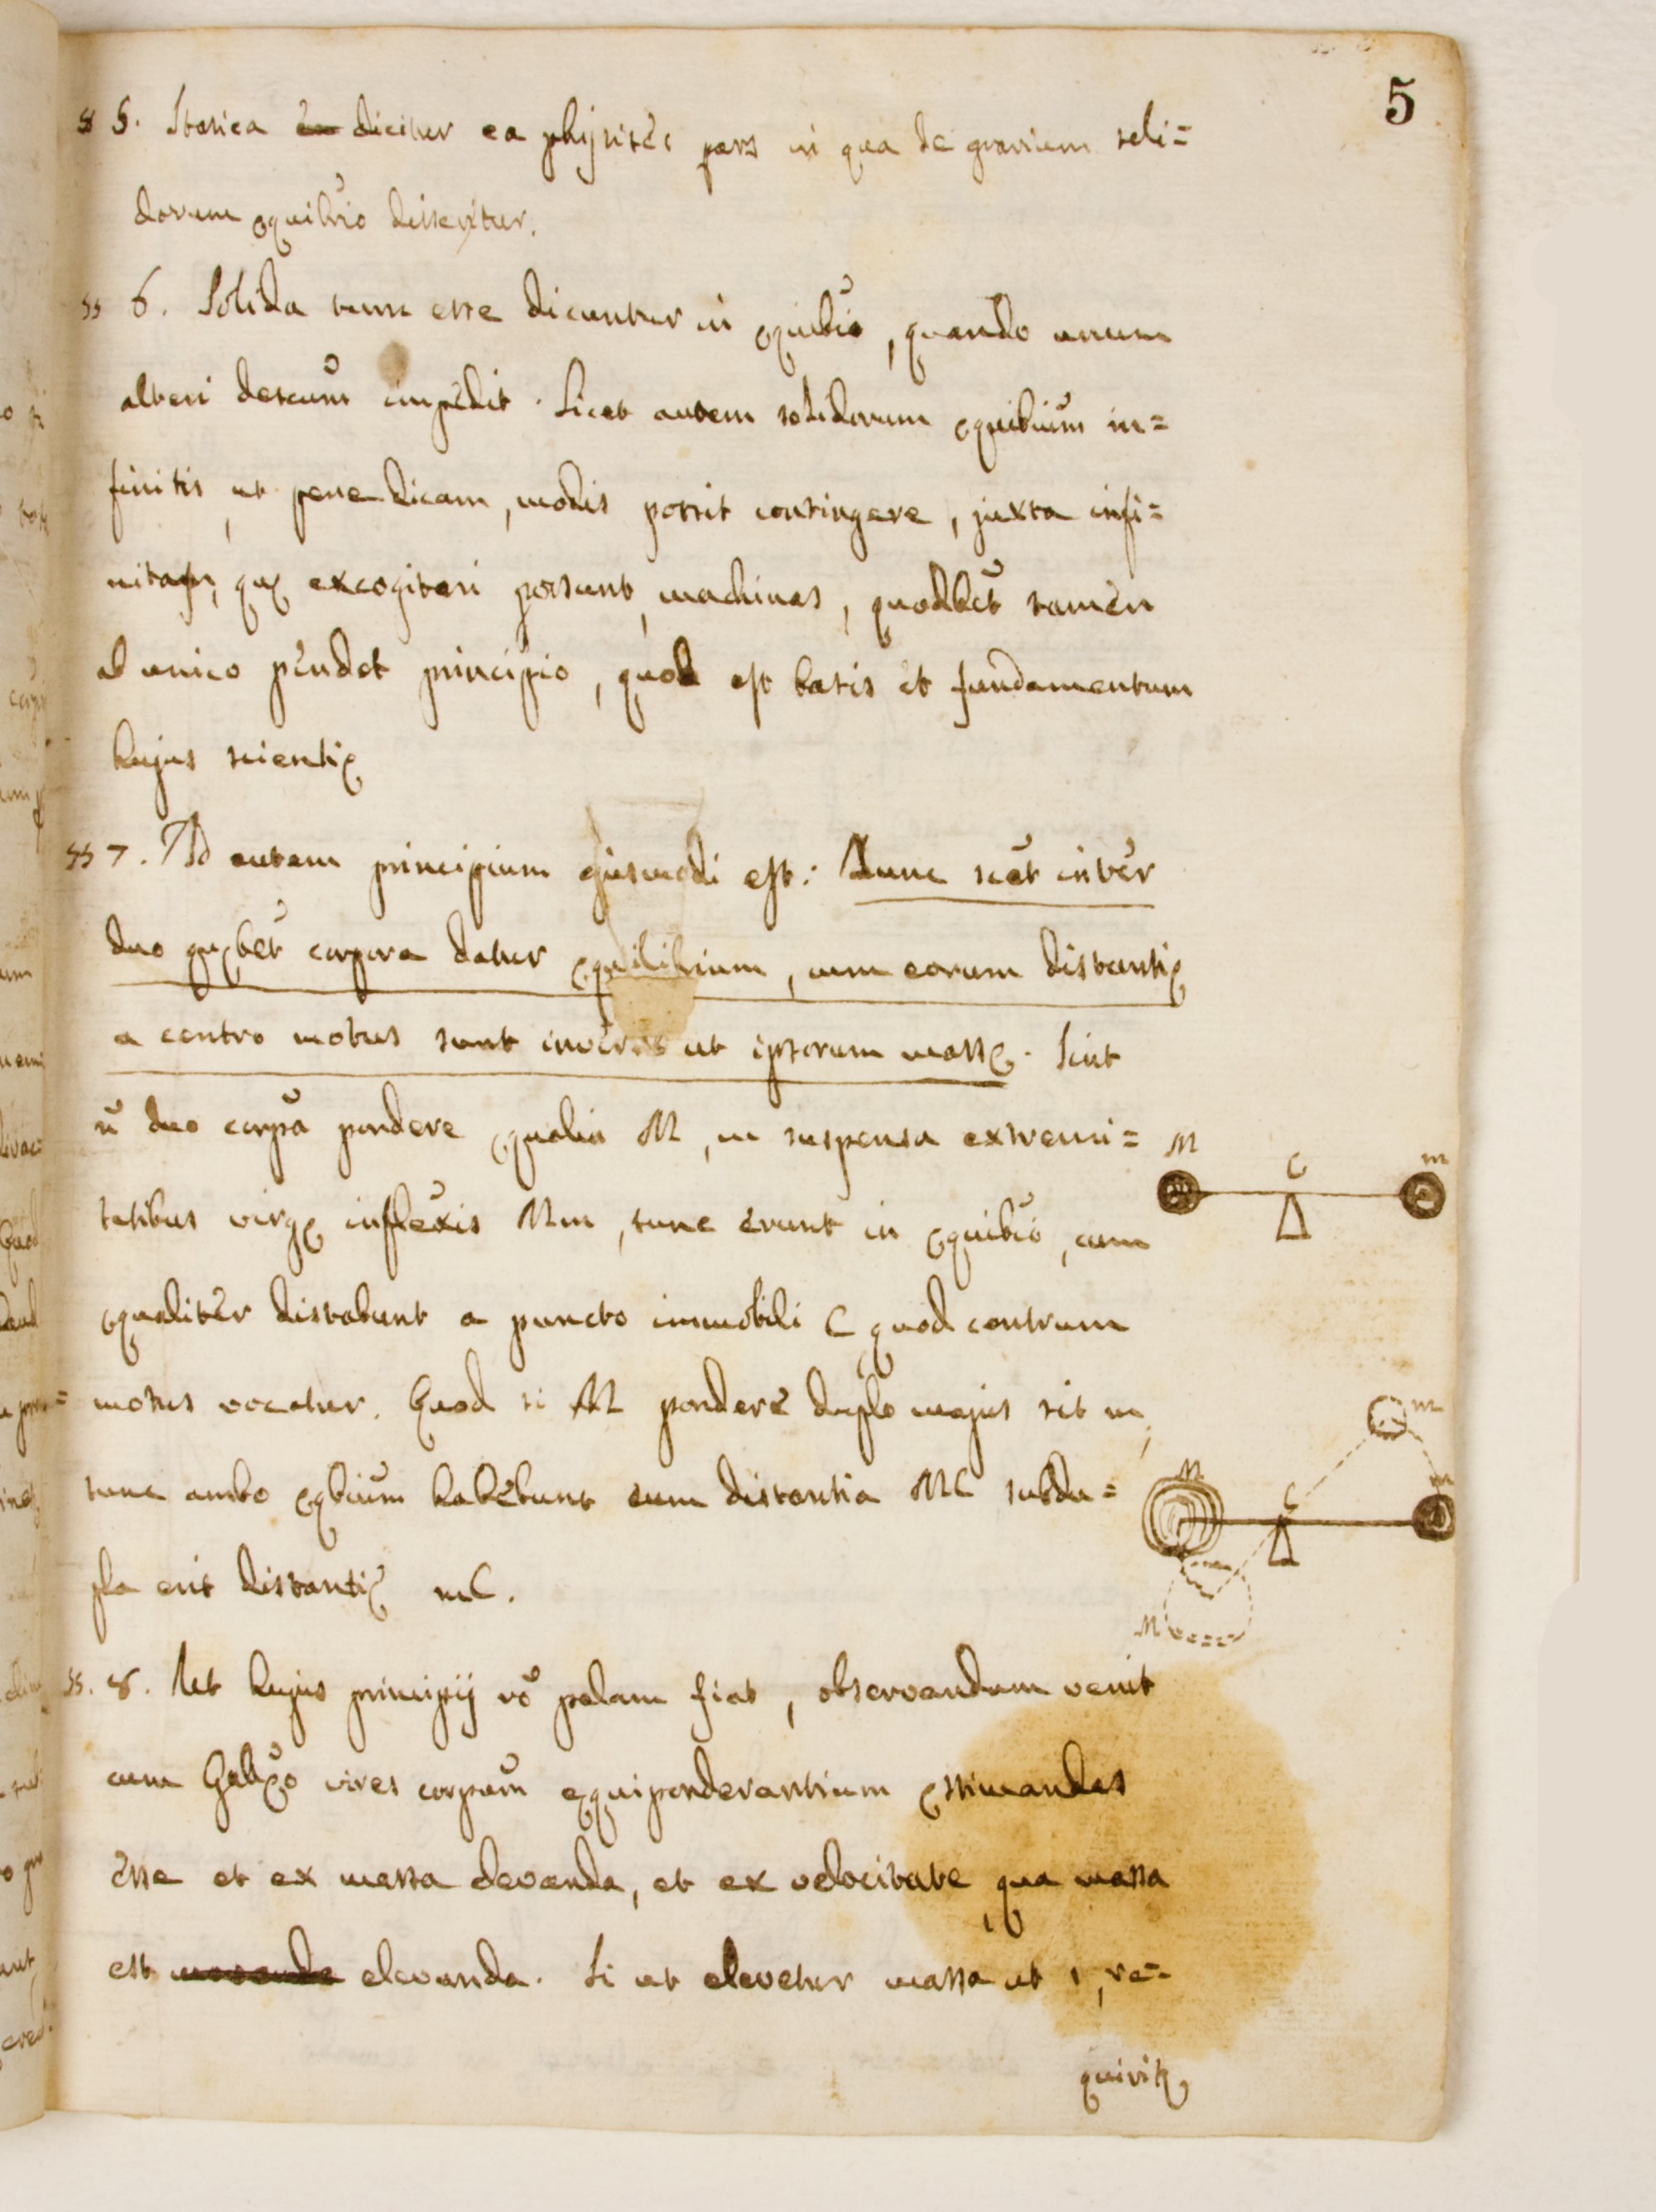 5
§ 5. Statica dicitur ea physicæ pars in qua de gravium soli=
dorum equilibrio disseritur.
§§ 6. Solida tunc esse dicuntur in equibĩo, quando unum
alteri descenũs impedit. Licet autem solidorum equibiũm in=
finitis, ut pene dicam, modis possit contingere, juxta infi=
nitas, quę excogitari possunt, machinas, quodlibẽt tamen
ab unico pendet principio, quod est basis et fundamentum
hujus scientię
§§ 7. Id autem principium ejusmodi est: Tunc scẽt inter
duo quębẽt corpora datur equilibrium, cum eorum distantię
a centro motus sunt inverse ut ipsorum massę. Sint
ñ duo corpũa pondere equalia M, m suspensa extremi=
tatibus virgę inflexis Mm, tunc erunt in equibĩo, cum
equaliter distabunt a puncto immobili C quod centrum
motus vocatur. Quod si M pondere duplo majus sit m,
tunc ambo eqbiũm habebunt cum distantia MC subdu=
pla erit distantię mC.
M C m
m
M C m
M
§§. 8. Ut hujus principij rõ palam fiat, observandum venit
cum Galilęo vires corpũm equiponderantium ęstimandas
esse et ex massa elevanda, et ex velocitate, qua massa
est movenda elevanda. Si ut elevetur massa ut 1, re=
quirit